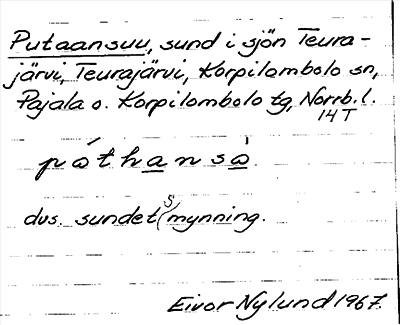 Putaansuu, sund i sjön Teura-
järvi, Teurajärvi, Korpilombolo sn,
Pajala o. Korpilombolo tg, Norrb. l.
14 T
pó̀tha̲nsà̲.
dvs. sundet(s) mynning.
Eivor Nylund 1967.